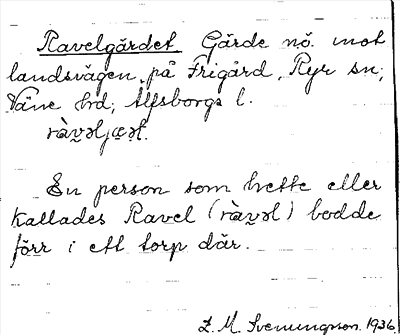 Ravelgärdet Gärde nö. mot
landsvägen på Frigård, Ryr sn;
Väne hd; Älfsborgs l.
En person som hette eller
kallades Ravel (ràv̯əl) bodde
förr i ett torp där.
L. M. Svenungsson. 1936.